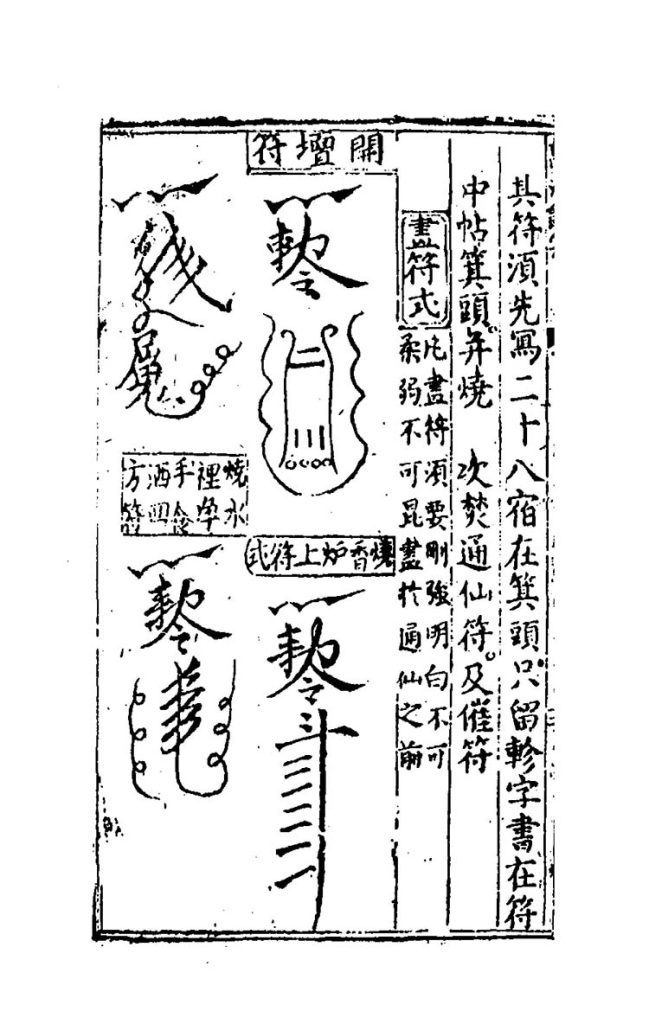 其符須先寫二十八宿在箕頭只留軫字書在符
中帖箕頭并燒　次焚通仙符及催符
畫符式
凡畫符須要剛強明白不可
柔弱不可昆畫於通仙之前
開壇符
燒香炉上符式
燒水
裡淨
手
洒四
方符